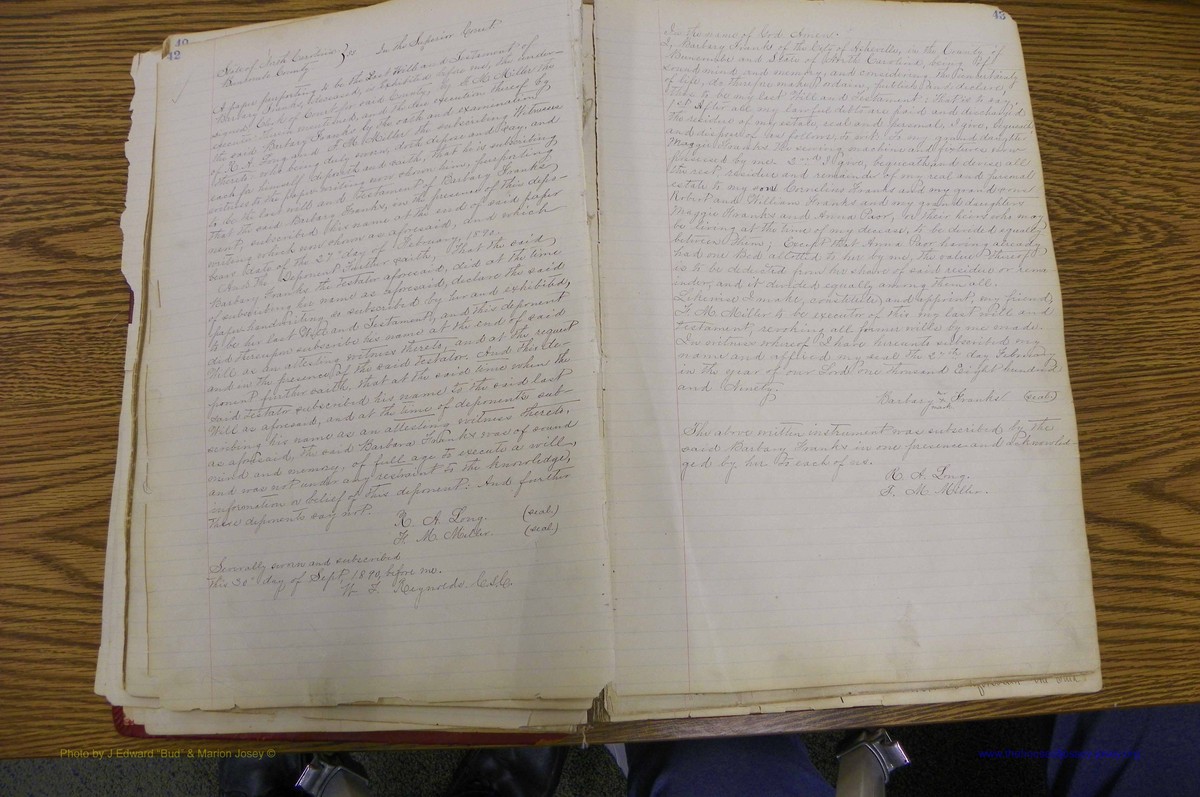 42
State of North Carolina } ss   In the Superior Court
Buncombe County
A paper purporting to be the Last Will and Testament of
Barbary Franks, deceased, is exhibited before me, the under-
signed, Clerk of Court for said County, by F. M. Miller the
executor therein mentioned, and the due execution thereof by
the said Barbary Franks by the oath and examination
of R. A. Long and F. M. Miller the subscribing witnesses
thereto; who being duly sworn, doth depose and say, and
each for himself deposeth and saith, that he is a subscribing
witness to the paper writing now shown him, purporting
to be the last will and Testament of Barbary Franks
that the said Barbary Franks, in the presence of this depo-
nent, subscribed his name at the end of said paper
writing which now shown as aforesaid, and which
bears date of the 27th day of February, 1890.
And the Deponent Further saith, That the said
Barbary Franks the Testator aforesaid, did at the time
of subscribing her name as aforesaid, declare the said
paper handwriting so subscribed by her and exhibited,
to be her last Will and Testament, and this deponent
did thereupon subscribe his name at the end of said
Will as an attesting witness thereto, and at the request
and in the presence of the said testator. And this de-
ponent further saith, that at the said time when the
said Testator subscribed his name to the said last
Will as aforesaid, and at the time of deponents sub-
scribing his name as an attesting witness thereto,
as aforesaid, the said Barbara Franks was of sound
mind and memory, of full age to execute a will,
and was not under any restraint to the knowledge,
information or belief of this deponent: And further
these deponents say not.
R. A. Long. (seal)
F. M. Miller. (seal)
Severally sworn and subscribed
this day of Sept, 1890, before me.
W. T. Reynolds C.S.C.
43
In the name of God Amen.
I, Barbary Franks of the City of Asheville, in the County of
Buncombe and State of North Carolina, being of
sound mind and memory, and considering the uncertainty
of life, do therefore make, ordain, publish and declare,
this to be my last Will and Testament: That is to say,
1st After all my lawful debts are paid and discharged
the residue of my estate, real and personal, I give, bequeath
and dispose of as follows, to wit: To my grand daughter
Maggie Franks the sewing machine and fixtures now
possessed by me. 2nd I give, bequeath and devise all
the rest residue and remainder of my real and personal
estate to my son Cornelius Franks and my grand sons
Robert and William Franks and my grand daughters
Maggie Franks and Anna Poor, or their heirs who may
be living at the time of my decease, to be divided equally
between them; Except that Anna Poor having already
had one Bed allotted to her by me, the value thereof
is to be deducted from her share of said residue or rema
inder, and it divided equally among them all.
Likewise I make, constitute and appoint, my friend,
F. M. Miller to be executor of this my last Will and
testament, revoking all former wills by me made.
In witness whereof I have hereunto subscribed my
name and affixed my seal the 27th day February
in the year of our Lord one thousand Eight hundred
and Ninety.
Barbary her x mark Franks (seal)
The above written instrument was subscribed by the
said Barbary Franks in our presence and acknowled
ged by her to each of us.
R. A. Long.
F. M. Miller.
Photo by J Edward "Bud" & Marion Josey ©